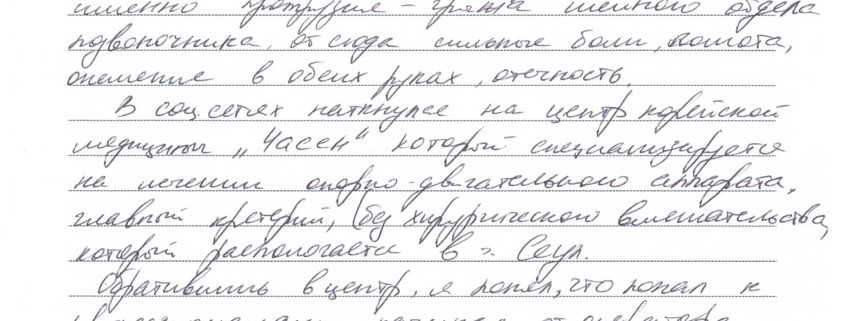 именно протрузия - грыжа шейного отдела
позвоночника, от сюда сильные боли, ломота,
онемение в обеих руках, отечность.
В соц.сетях наткнулся на центр корейской
медицины „Часен“ который специализируется
на лечении опорно-двигательного аппарата,
главный кретерий, (без хирургического вмешательства,
который распологается в г. Сеул.
Обратившись в центр, я понял, что попал к